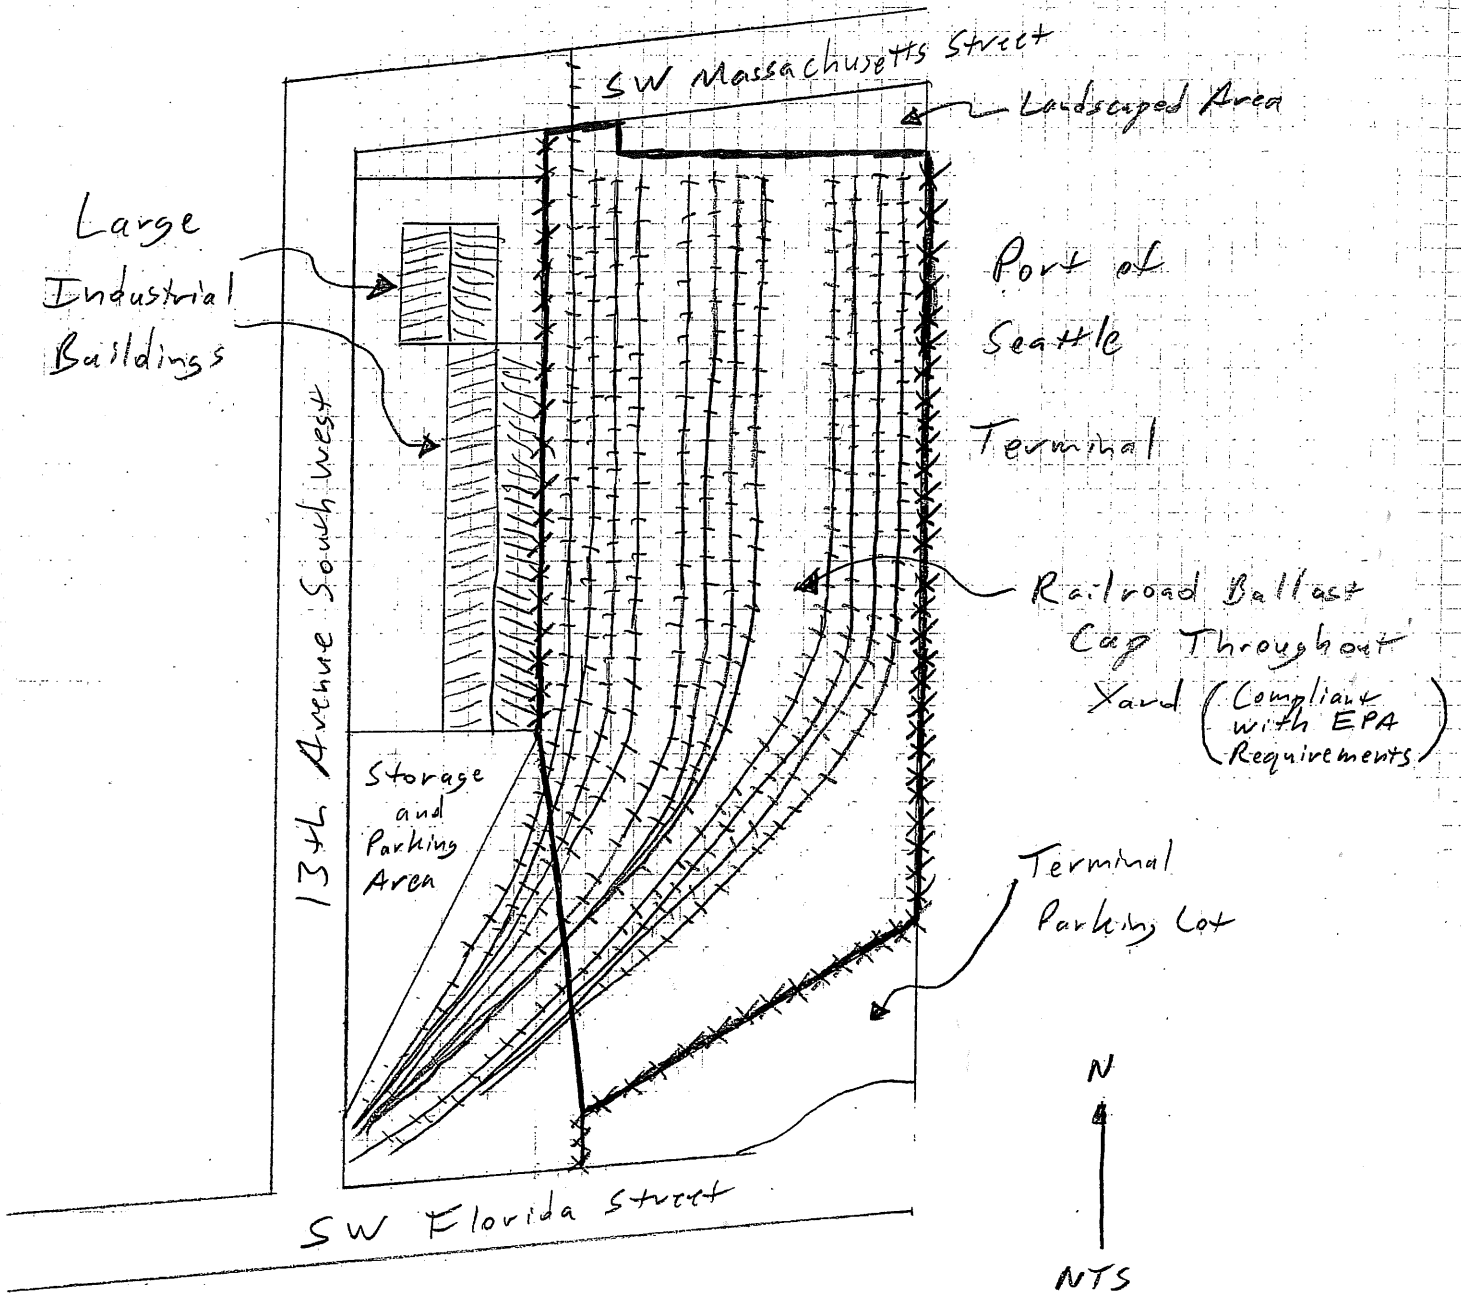 SW Massachusetts Street
Landscaped Area
Large
Industrial
Buildings
Port of
Seattle
Terminal
13th Avenue South West
Railroad Ballast
Cap Throughout
Yard (Compliant
with EPA
Requirements)
Storage
and
Parking
Area
Terminal
Parking Lot
N
NTS
SW Florida Street